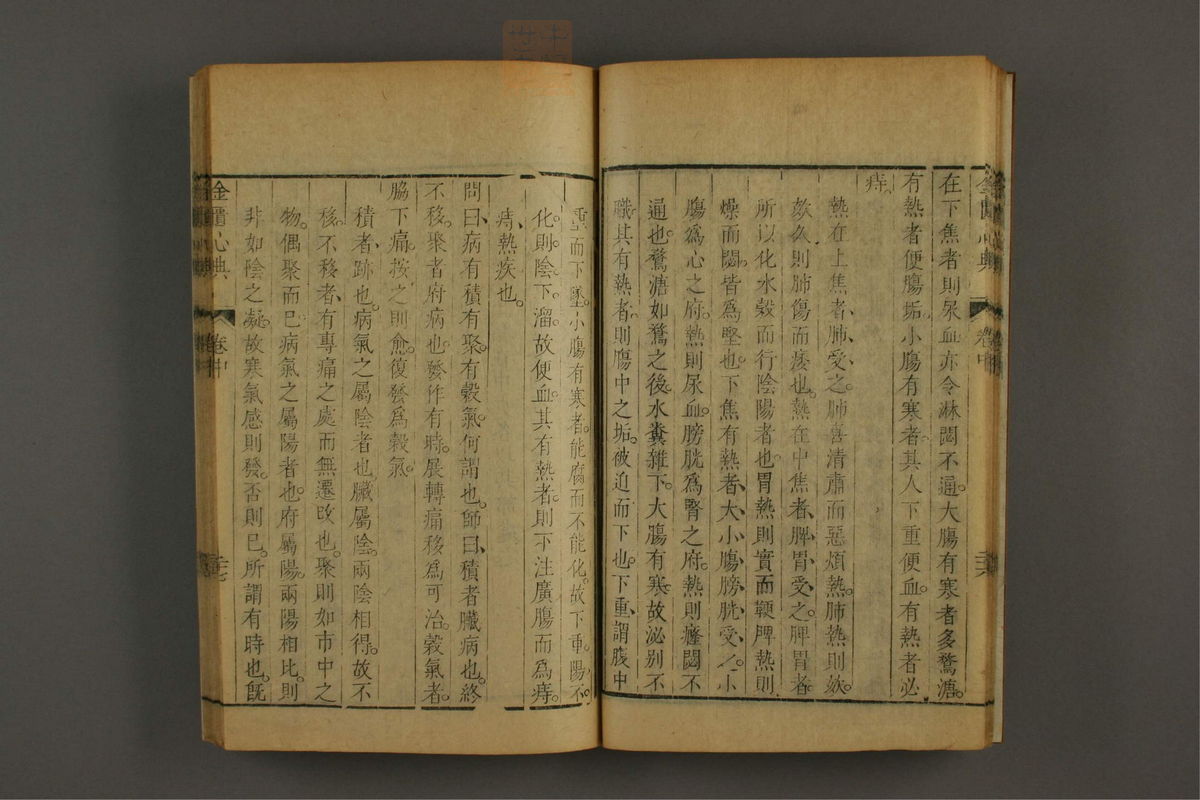 在下焦者則尿血亦令淋閟不通大腸有寒者多鶩溏。
有熱者便腸垢小腸有寒者其人下重便血有熱者必
痔。
熱在上焦者、肺受之。肺喜清肅而惡煩熱。肺熱則欬。
欬久則肺傷而痿也。熱在中焦者、脾胃受之。脾胃者、
所以化水穀而行陰陽者也。胃熱則實而鞕。脾熱則
燥而閟。皆為堅也。下焦有熱者、大小腸膀胱受之。小
腸為心之府。熱則尿血。膀胱為腎之府。熱則癃閟不
通也。鶩溏如鶩之後。水糞雜下。大腸有寒、故泌別不
職。其有熱者、則腸中之垢。被迫而下也。下重、謂腹中
重而下墜。小腸有寒者。能腐而不能化。故下重。陽不
化。則陰下溜。故便血。其有熱者。則下注廣腸而為痔。
痔、熱疾也。
問曰、病有積有聚。有穀氣。何謂也。師曰、積者臟病也。終
不移。聚者府病也。發作有時。展轉痛移。為可治。穀氣者
脇下痛。按之則愈。復發為穀氣。
積者、跡也。病氣之屬陰者也。臟屬陰。兩陰相得。故不
移。不移者、有專痛之處而無遷改也。聚則如市中之
物。偶聚而已病氣之屬陽者也。府屬陽。兩陽相比。則
非如陰之凝。故寒氣感則發。否則已。所謂有時也。既
金匱心典
卷中
二十六
金匱心典
卷中
二十七